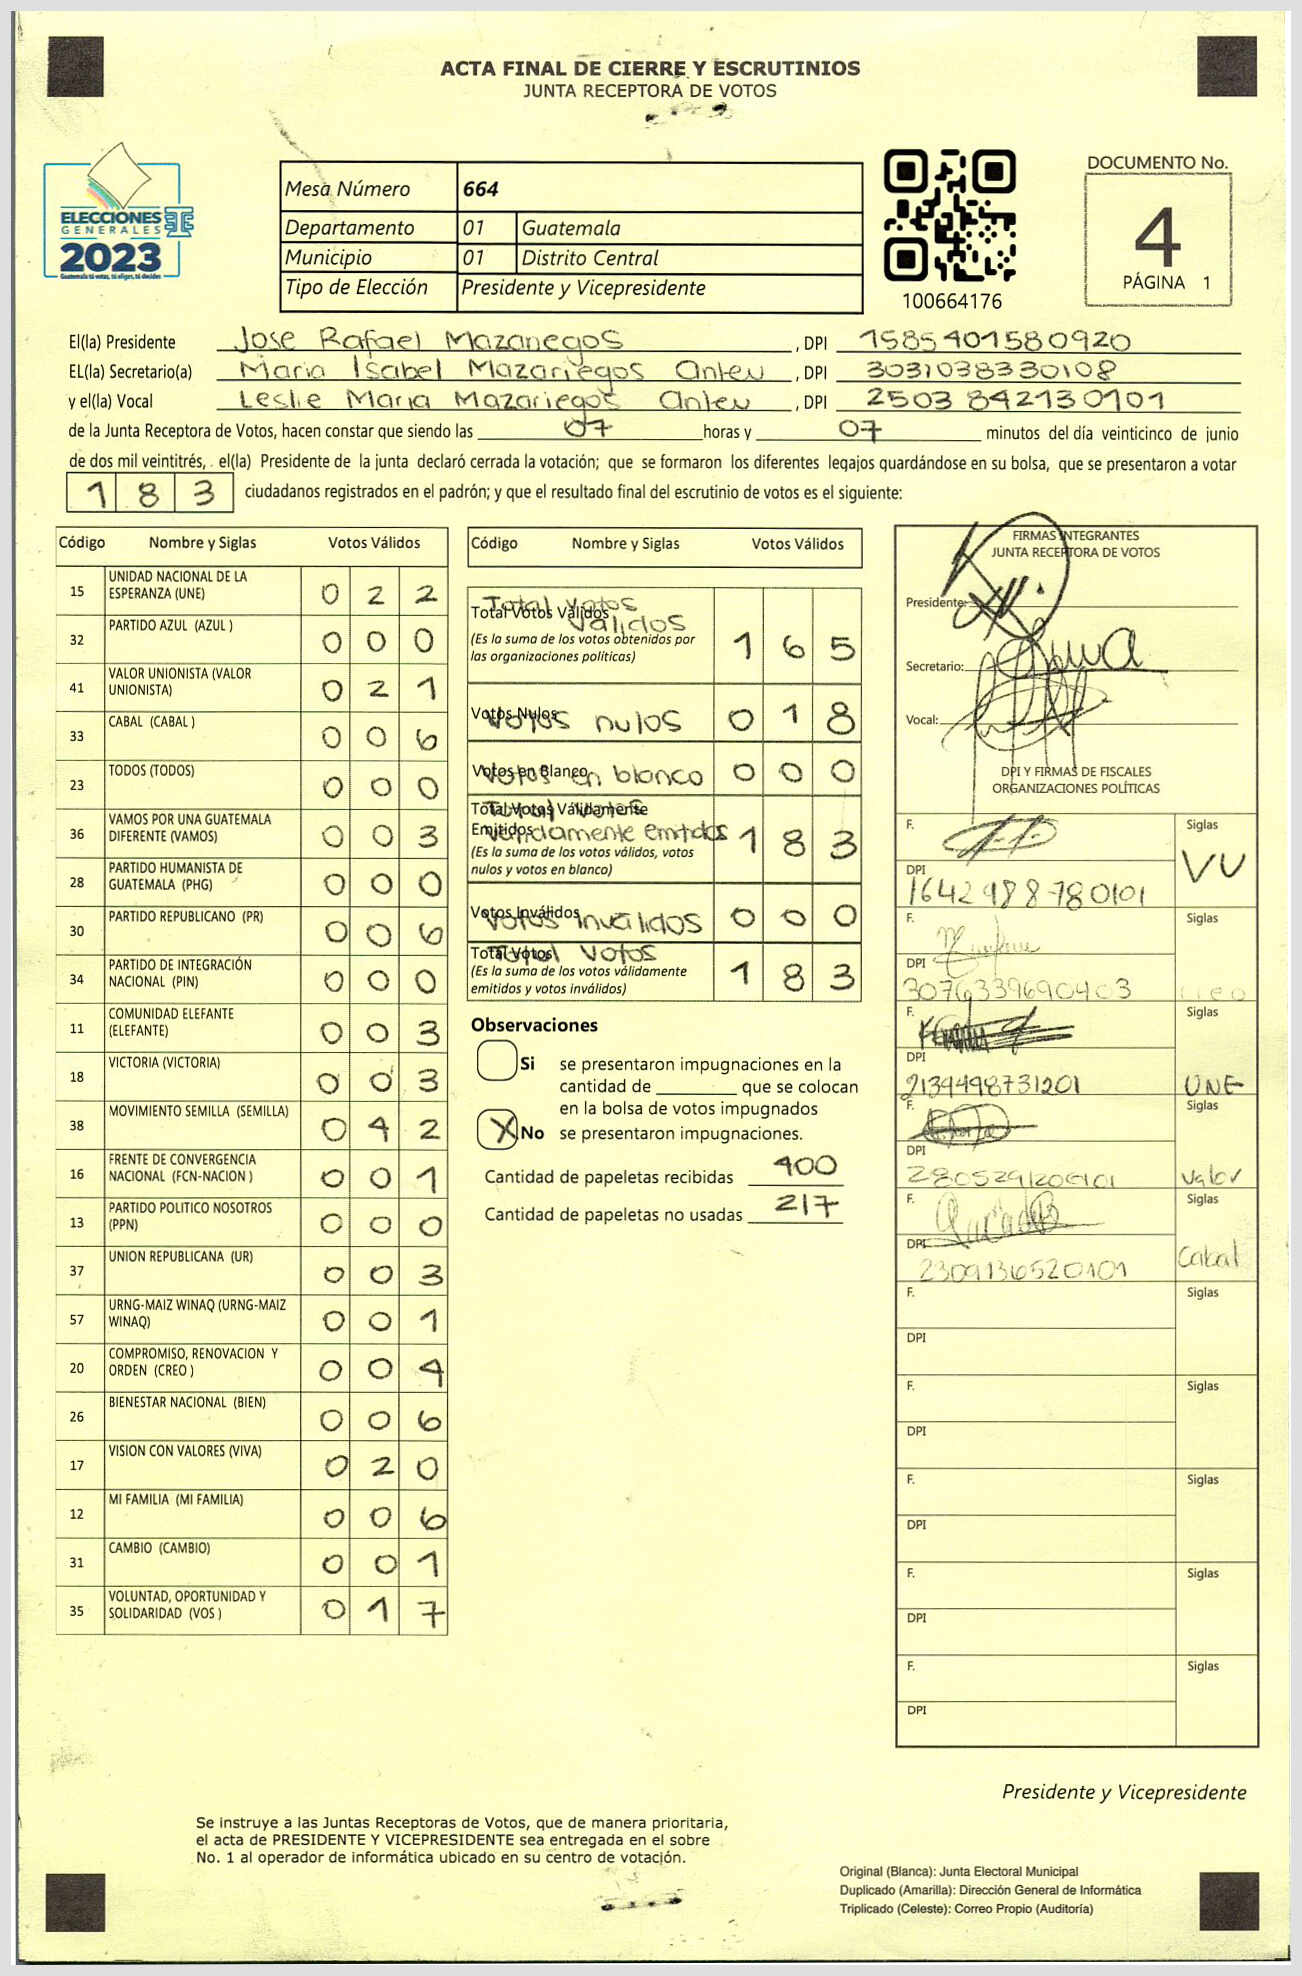 ACTA FINAL DE CIERRE Y ESCRUTINIOS
JUNTA RECEPTORA DE VOTOS
ELECCIONES
GENERALES
2023
Guatemala tú votas, tú eliges, tú decides
Mesa Número 664
Departamento 01 Guatemala
Municipio 01 Distrito Central
Tipo de Elección Presidente y Vicepresidente
100664176
DOCUMENTO No.
4
PÁGINA 1
El(la) Presidente Jose Rafael Mazariegos, DPI 1585401580920
EL(la) Secretario(a) Maria Isabel Mazariegos Anleu, DPI 3031038330108
y el(la) Vocal Leslie Maria Mazariegos Anleu, DPI 2503 842130101
de la Junta Receptora de Votos, hacen constar que siendo las 07 horas y 07 minutos del día veinticinco de junio
de dos mil veintitrés, el(la) Presidente de la junta declaró cerrada la votación; que se formaron los diferentes legajos quardándose en su bolsa, que se presentaron a votar
183 ciudadanos registrados en el padrón; y que el resultado final del escrutinio de votos es el siguiente:
Código Nombre y Siglas Votos Válidos
15 UNIDAD NACIONAL DE LA ESPERANZA (UNE) 0 2 2
32 PARTIDO AZUL (AZUL ) 0 0 0
41 VALOR UNIONISTA (VALOR UNIONISTA) 0 2 1
33 CABAL (CABAL ) 0 0 6
23 TODOS (TODOS) 0 0 0
36 VAMOS POR UNA GUATEMALA DIFERENTE (VAMOS) 0 0 3
28 PARTIDO HUMANISTA DE GUATEMALA (PHG) 0 0 0
30 PARTIDO REPUBLICANO (PR) 0 0 6
34 PARTIDO DE INTEGRACIÓN NACIONAL (PIN) 0 0 0
11 COMUNIDAD ELEFANTE (ELEFANTE) 0 0 3
18 VICTORIA (VICTORIA) 0 0 3
38 MOVIMIENTO SEMILLA (SEMILLA) 0 4 2
16 FRENTE DE CONVERGENCIA NACIONAL (FCN-NACION ) 0 0 1
13 PARTIDO POLITICO NOSOTROS (PPN) 0 0 0
37 UNION REPUBLICANA (UR) 0 0 3
57 URNG-MAIZ WINAQ (URNG-MAIZ WINAQ) 0 0 1
20 COMPROMISO, RENOVACION Y ORDEN (CREO ) 0 0 4
26 BIENESTAR NACIONAL (BIEN) 0 0 6
17 VISION CON VALORES (VIVA) 0 2 0
12 MI FAMILIA (MI FAMILIA) 0 0 6
31 CAMBIO (CAMBIO) 0 0 1
35 VOLUNTAD, OPORTUNIDAD Y SOLIDARIDAD (VOS ) 0 1 7
Código Nombre y Siglas Votos Válidos
Total Votos Válidos
Total Votos Validos
(Es la suma de los votos obtenidos por
las organizaciones políticas) 1 6 5
Votos Nulos
Votos nulos 0 1 8
Votos en Blanco
Votos en blanco 0 0 0
Total Votos Válidamente
Emitidos
Total Votos Validamente emitidos 1 8 3
(Es la suma de los votos válidos, votos
nulos y votos en blanco)
Votos Inválidos
Votos invalidos 0 0 0
Total Votos
Total Votos
(Es la suma de los votos válidamente
emitidos y votos inválidos) 1 8 3
Observaciones
Si se presentaron impugnaciones en la
cantidad de ________ que se colocan
en la bolsa de votos impugnados
X No se presentaron impugnaciones.
Cantidad de papeletas recibidas 400
Cantidad de papeletas no usadas 217
FIRMAS INTEGRANTES
JUNTA RECEPTORA DE VOTOS
Presidente:
Secretario:
Vocal:
DPI Y FIRMAS DE FISCALES
ORGANIZACIONES POLÍTICAS
F. Siglas
VU
DPI
1642 988 780101
F. Siglas
DPI
3076339690403 creo
F. Siglas
DPI
2134498731201 UNE
F. Siglas
DPI
Valor
F. Siglas
DPI
2309136520101 Cabal
F. Siglas
DPI
F. Siglas
DPI
F. Siglas
DPI
F. Siglas
DPI
F. Siglas
DPI
Presidente y Vicepresidente
Se instruye a las Juntas Receptoras de Votos, que de manera prioritaria,
el acta de PRESIDENTE Y VICEPRESIDENTE sea entregada en el sobre
No. 1 al operador de informática ubicado en su centro de votación.
Original (Blanca): Junta Electoral Municipal
Duplicado (Amarilla): Dirección General de Informática
Triplicado (Celeste): Correo Propio (Auditoría)